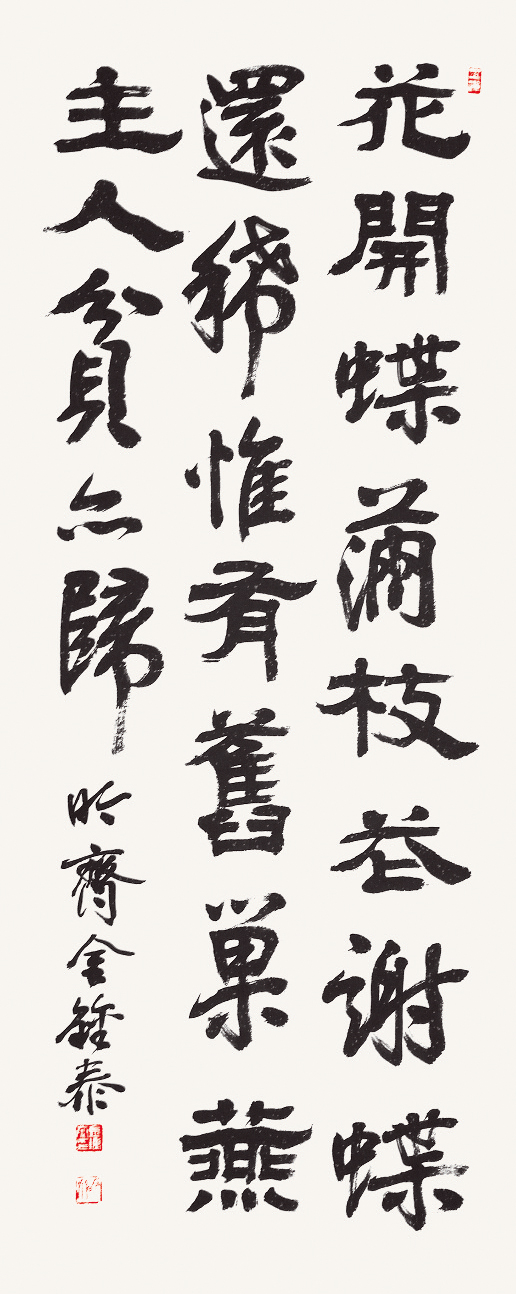 花開蝶滿枝花謝蝶
還稀惟有舊巢燕
主人貧亦歸 齋金鍾泰